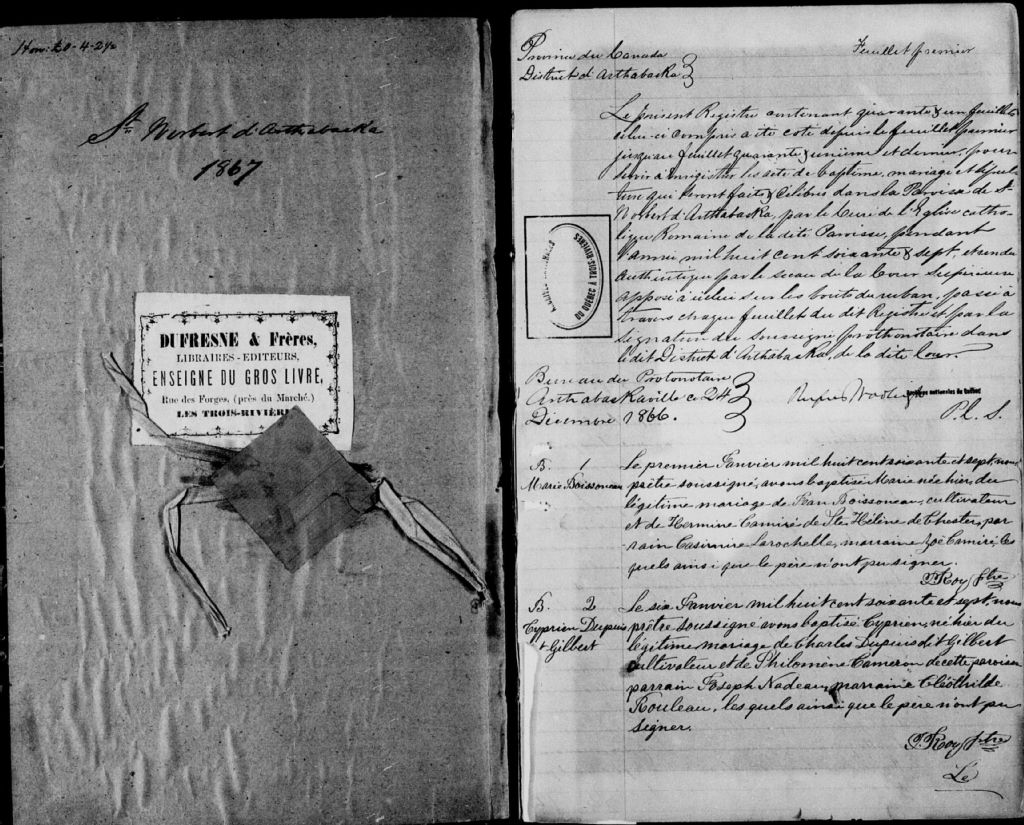 St Norbert d'Arthabaska
1867
DUFRESNE & Frères,
LIBRAIRES-EDITEURS,
ENSEIGNE DU GROS LIVRE,
Rue des Forges, (près du Marché.)
LES TROIS-RIVIÈR
Province du Canada
District d'Arthabaska
Feuillet premier
Le présent Registre contenant quarante & un feuillets
celui-ci compris a été coté depuis le feuillet premier
jusqu'au feuillet quarante & unième et dernier, pour
servir à enregistrer les acte de baptême, mariage et sépul-
ture qui seront faits & célébrés dans la Paroisse de St
Norbert d'Arthabaska, par le Curé de l'Eglise catho-
lique Romaine de la dite Paroisse, pendant
l'année mil huit cent soixante & sept, et rendu
authentique par le sceau de la Cour Supérieure
apposé à icelui sur les bouts du ruban, passé à
travers chaque feuillet du dit Registre et par la
signature du soussigné prothonotaire dans
le dit District d'Arthabaska, de la dite Cour.
DU QUÉBEC À TROIS-RIVIÈRES
Bureau du Protonotaire
Arthabaskaville ce 24
Décembre 1866.
nationales du Québec
P.C.S.
B. 1
Marie Boissoneau
Le premier Janvier mil huit cent soixante et sept, nous
prêtre soussigné, avons baptisé Marie née hier, du
légitime mariage de Jean Boissoneau, cultivateur
et de Hermine Camiré de Ste Hélène de Chester, par
rain Casimire Larochelle, marraine Zoé Camiré, les
quels ainsi que le père n'ont pu signer.
J. Roy ptre
B. 2
Cyprien Dupuis
dt Gilbert
Le six Janvier mil huit cent soixante et sept, nous
prêtre soussigné avons baptisé Cyprien, né hier du
légitime mariage de Charles Dupuis dit Gilbert
cultivateur et de Philomène Cameron de cette paroisse
parrain Joseph Nadeau, marraine Cléothilde
Rouleau, les quels ainsi que le père n'ont pu
signer.
J. Roy ptre
Le